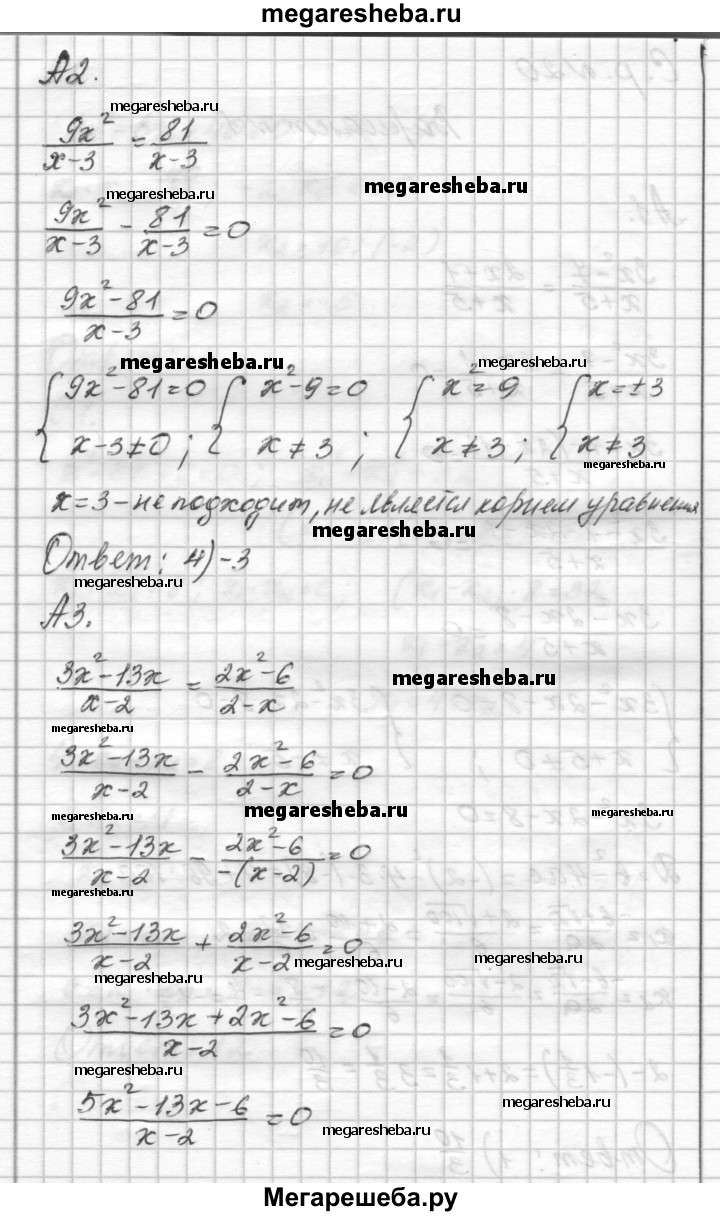 megaresheba.ru
А2.
megaresheba.ru
9x²/(x-3) = 81/(x-3)
megaresheba.ru
megaresheba.ru
9x²/(x-3) - 81/(x-3) = 0
(9x²-81)/(x-3) = 0
megaresheba.ru
megaresheba.ru
{9x²-81=0 {x²-9=0 {x²=9 {x=±3
x-3≠0; x≠3; x≠3; x≠3
megaresheba.ru
x=3 - не подходит, не является корнем уравнения
megaresheba.ru
Ответ: 4) -3
megaresheba.ru
А3.
(3x²-13x)/(x-2) = (2x²-6)/(2-x)
megaresheba.ru
megaresheba.ru
(3x²-13x)/(x-2) - (2x²-6)/(2-x) = 0
megaresheba.ru
megaresheba.ru
megaresheba.ru
(3x²-13x)/(x-2) - (2x²-6)/(-(x-2)) = 0
megaresheba.ru
(3x²-13x)/(x-2) + (2x²-6)/(x-2) = 0
megaresheba.ru
megaresheba.ru
megaresheba.ru
(3x²-13x+2x²-6)/(x-2) = 0
megaresheba.ru
(5x²-13x-6)/(x-2) = 0
megaresheba.ru
megaresheba.ru
Мегарешеба.ру